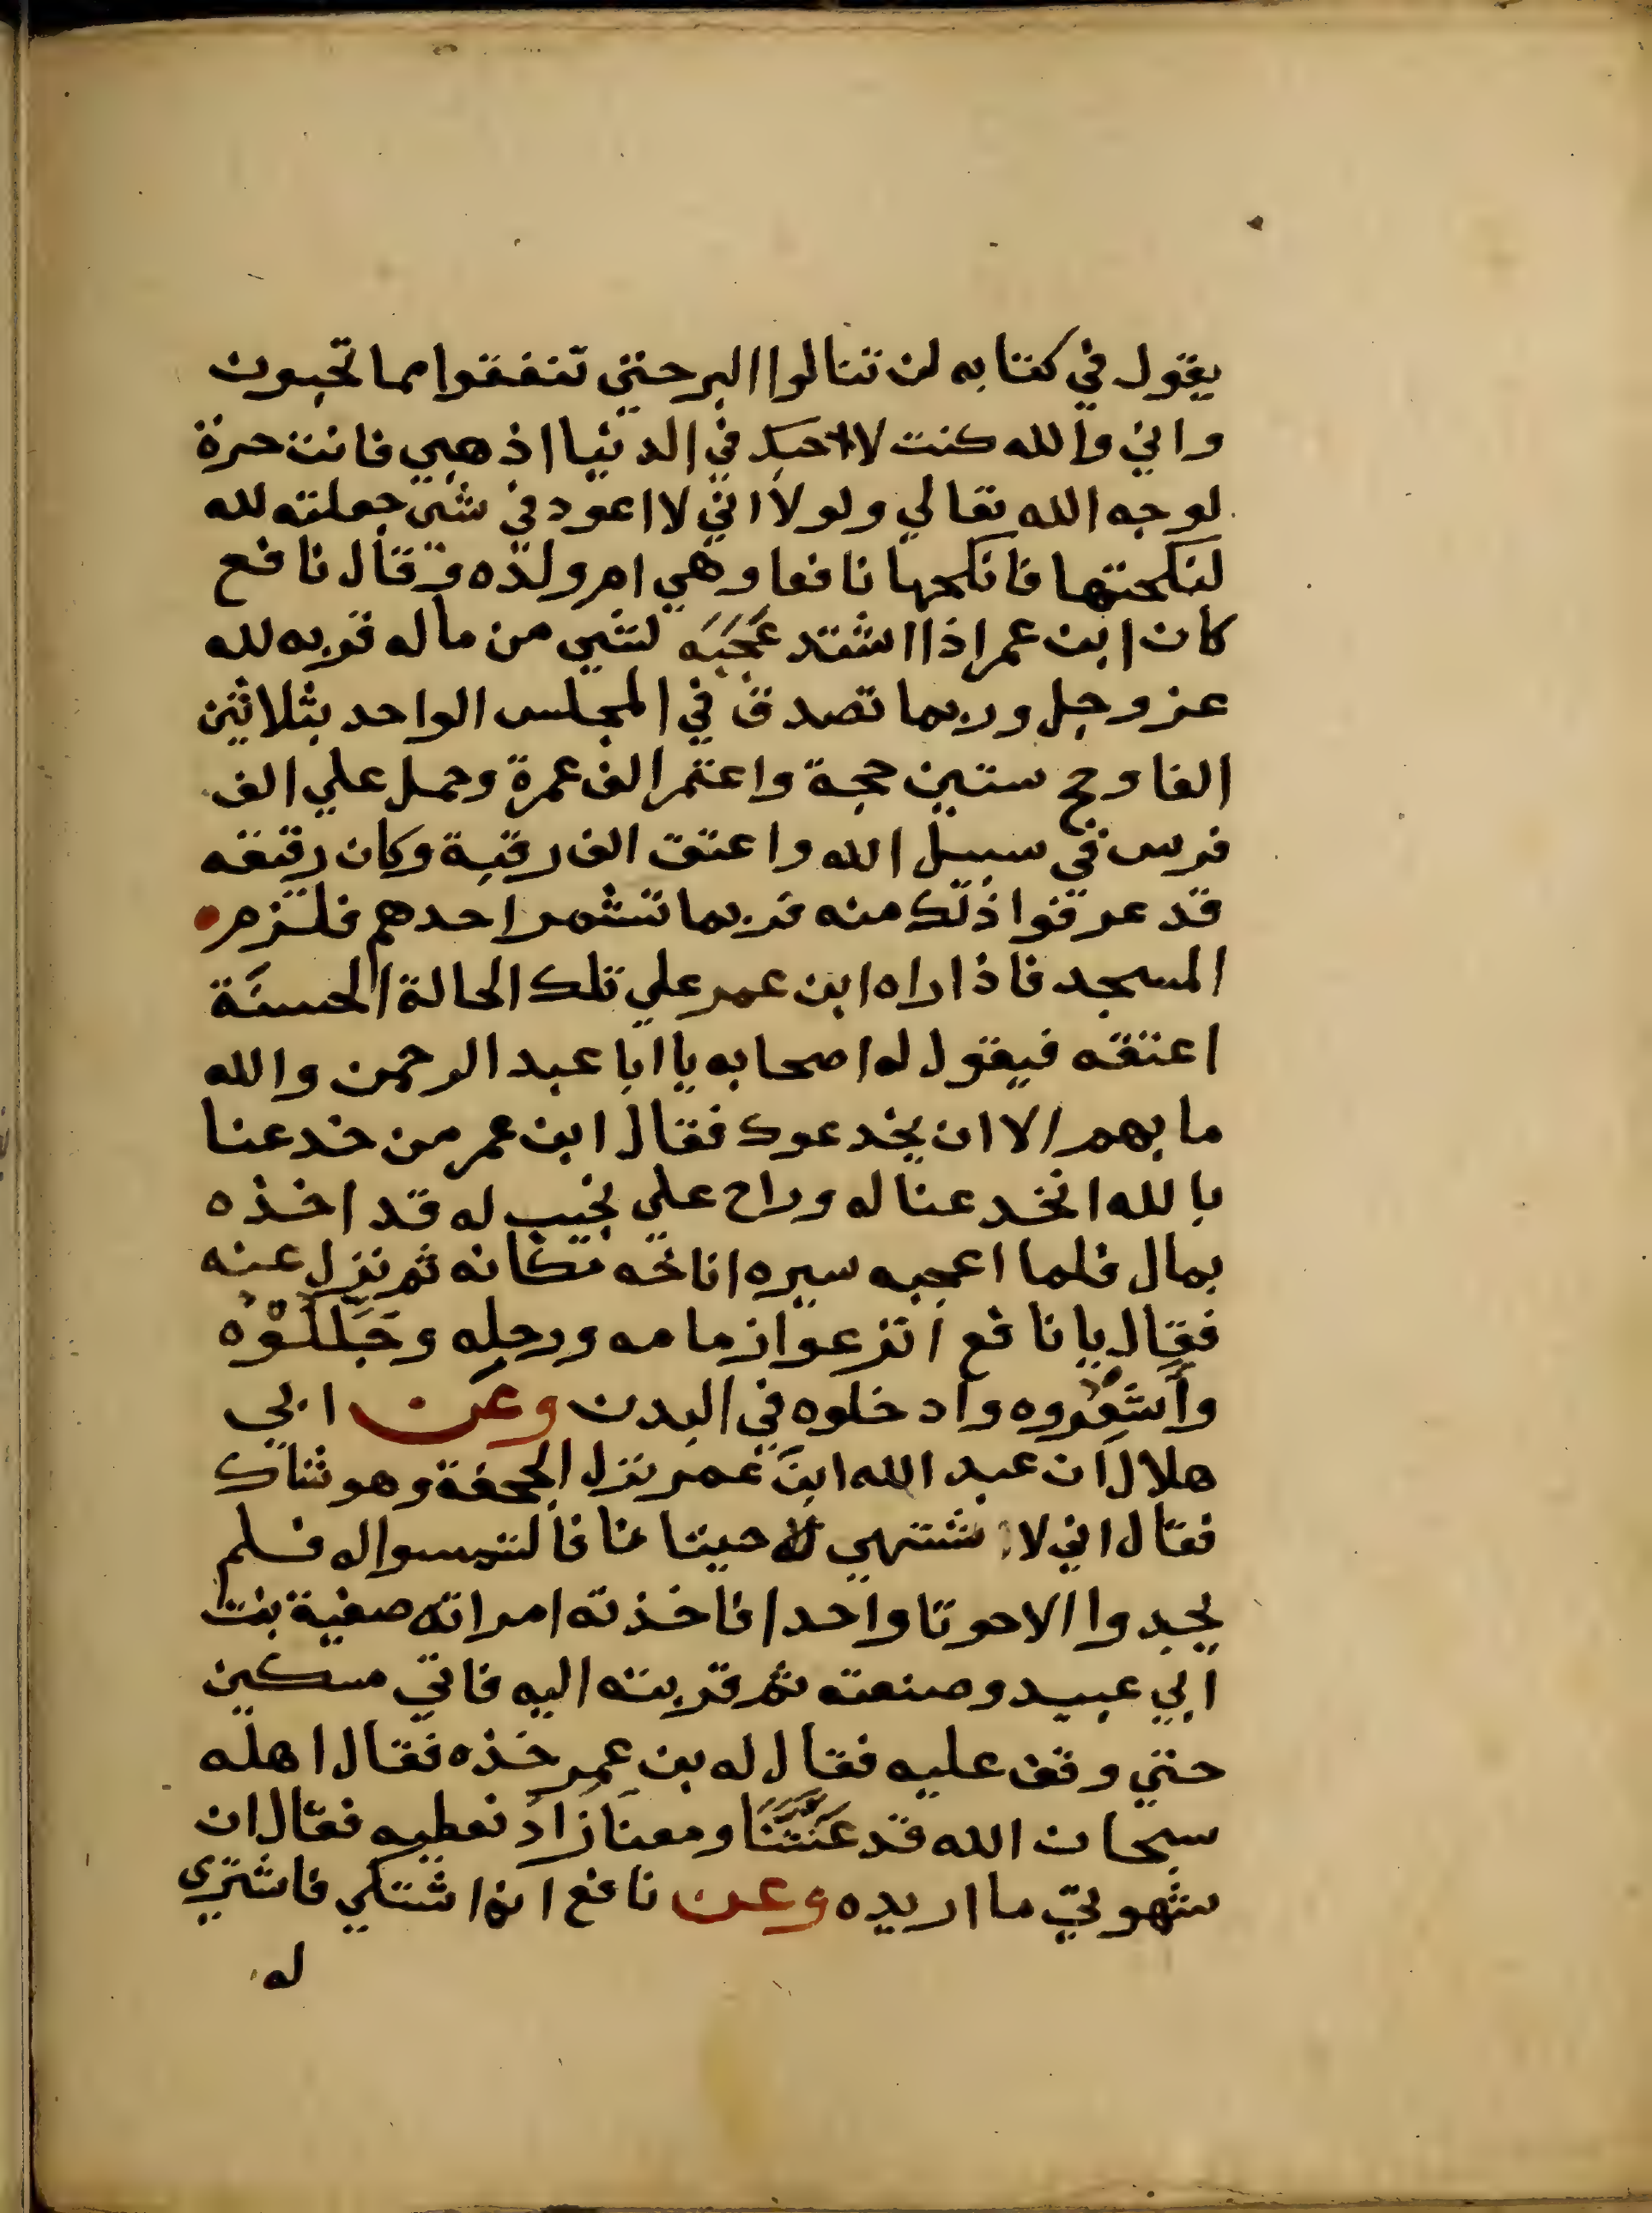 يقول في كتابه لن تنالوا البر حتي تنفقوا مما تحبون
واني والله كنت لااحبك في الدنيا اذهبي فانت حرة
لوجه الله تعالي ولولا اني لا اعود في شي جعلته لله
لنكحتها فانكحها نافعا وهي ام ولده وقال نافع
كان ابن عمر اذا اشتد عَجَبَه لشي من ماله قربه لله
عز وجل وربما تصدق في المجلس الواحد بثلاثين
الفا وحج ستين حجة واعتمر الف عمرة وحمل علي الف
فرس في سبيل الله واعتق الف رقبة وكان رقيقه
قد عرفوا ذلك منه فربما تشمر احدهم فلزم
المسجد فاذا راه ابن عمر علي تلك الحالة الحسنَة
اعتقه فيقول له اصحابه يا ابا عبد الرحمن والله
ما بهم الا ان يخدعوك فقال ابن عمر من خدعنا
بالله انخدعنا له وراح علي نجيب له قد اخذه
بمال فلما اعجبه سيره اناخه مكانه ثم نزل عنه
فقال يا نافع انزعوا زمامه ورحله وجَلِّلُوْه
وأَشعِروه وادخلوه في البدن وعن ابي
هلال ان عبد الله ابن عمر نزل الجحفة وهو شاك
فقال اني لا اشتهي حيتانا فالتمسوا له فلم
يجدوا الا حوتا واحدا فاخذته امراته صفية بنت
ابي عبيد وصنعته ثم قربته اليه فاتي مسكين
حتي وقف عليه فقال له بن عمر خذه فقال اهله
سبحان الله قد عَنَّتَنَا ومعنا زاد نعطيه فقال ان
شهوتي ما اريده وعن نافع انه اشتكي فاشتري
له